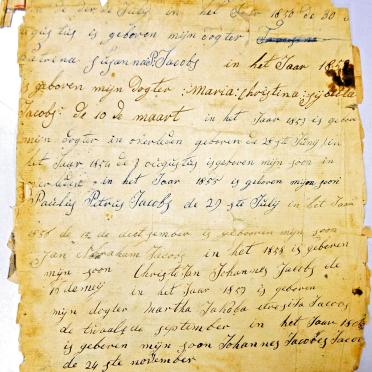 de der de July in het Jaar 1850 de 30
augustus is geboren mijn dogter
Susanna P. Jacobs in het Jaar 185
is geboren mijn Dogter :Maria: Christina: Sijbella
Jacobs: de 10 de maart in het Jaar 1853 is gebore
mijn dogter in overleden geboren de 28 ste Juny in
het Jaar 1854 de 7 ocigustus is geboren mijn soon in
in het Jaar 1855 is geboren mijn soon
Paulus Petrus Jacobs de 29 ste July in het Jaar
1856 de 12 de desember is gebooren mijn soon
Jan Abraham Jacobs in het 1858 is geboren
mijn soon Christe Jan Johannes Jacobs de
de meij in het Jaar 1859 is geboren
mijn dogter Martha Jakoba Jacobs
de twaalsde september in het Jaar 186
is geboren mijn soon Johannes Jacobus Jacobs
de 24 ste november